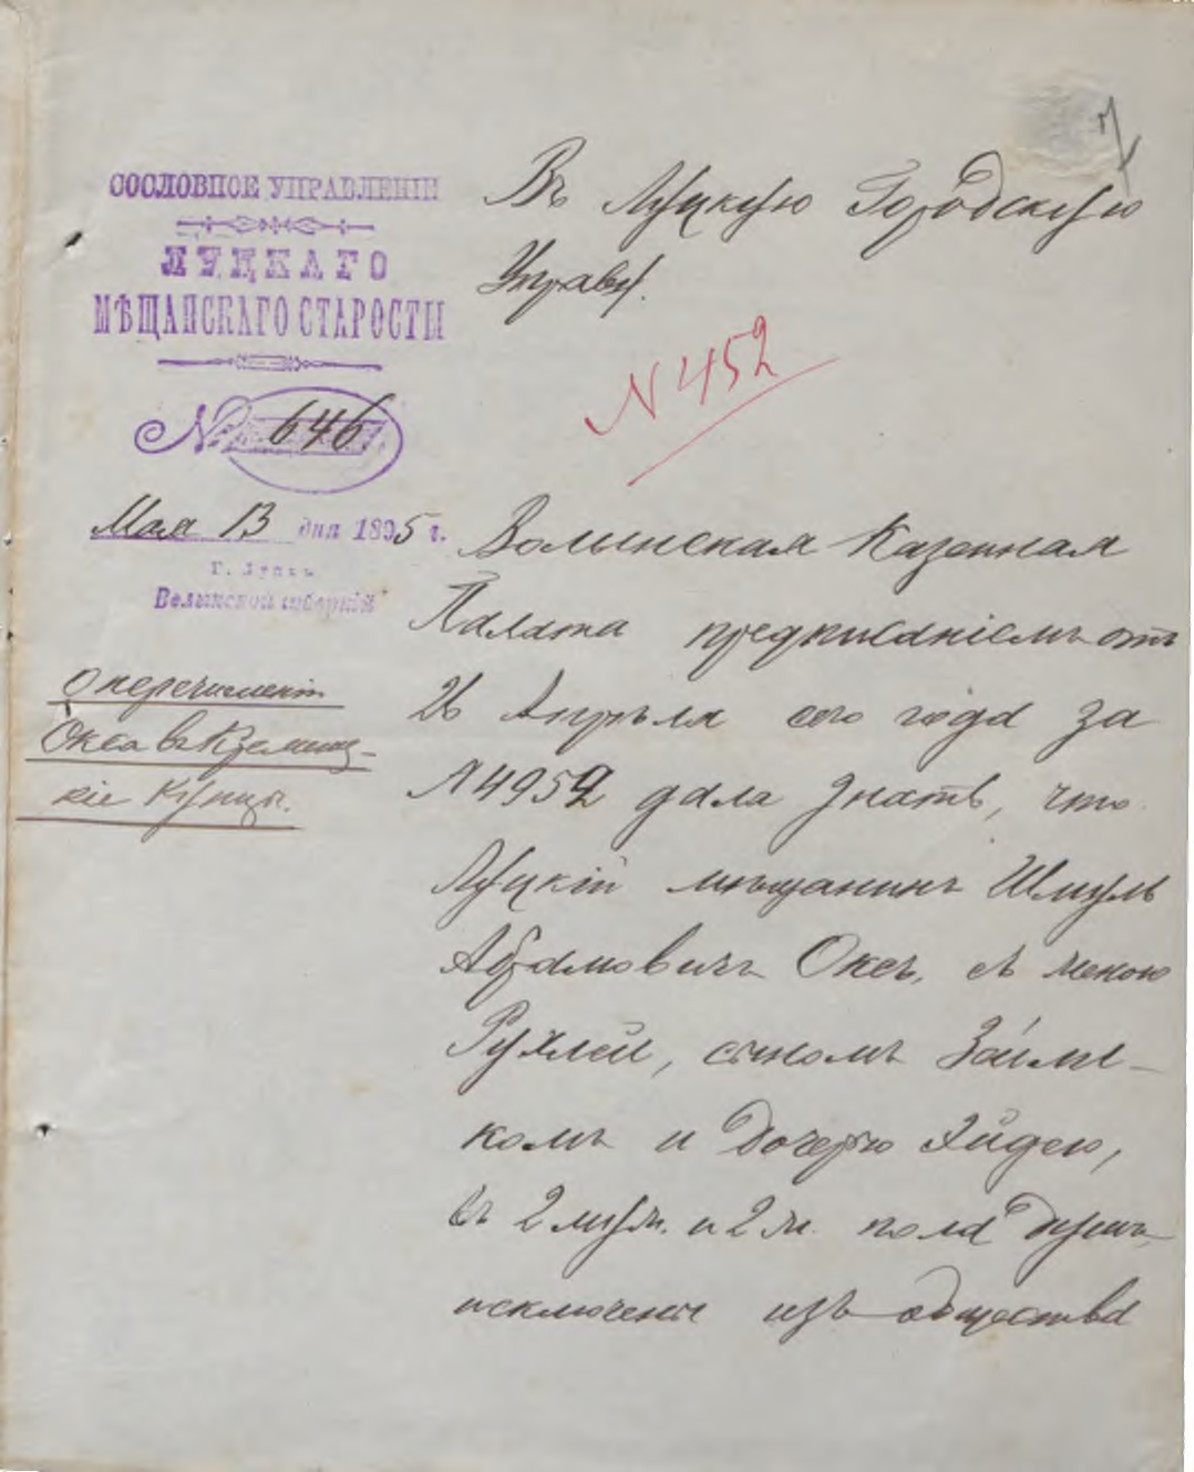 СОСЛОВНОЕ УПРАВЛЕНІЕ
ЛУЦКАГО
МѢЩАНСКАГО СТАРОСТЫ
№ 646
Мая 13 дня 1895 г.
Г. Луцкъ
Волынской губерніи
О перечисленіи
Окса въ Кременец-
кіе купцы.
Въ Луцкую Городскую
Управу.
N 452
Волынская Казенная
Палата предписаніемъ отъ
26 Апрѣля сего года за
№ 4952 дала знать, что
Луцкій мѣщанинъ Шмуль
Абрамовичъ Оксъ, съ женою
Рухлей, сыномъ
комъ и дочерью Хайдею,
въ 2 муж. и 2 ж. пола душъ
исключены изъ общества